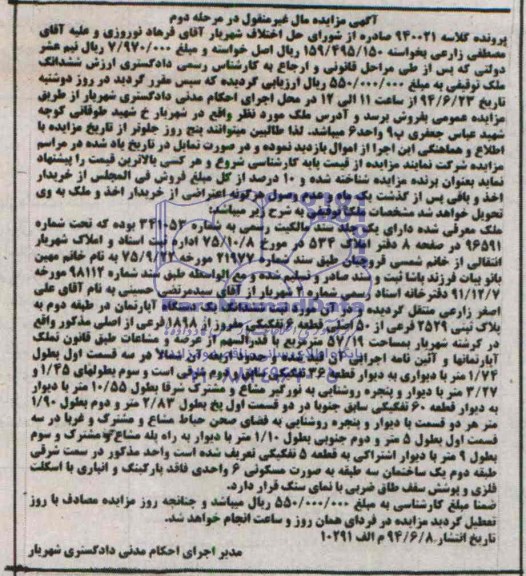 آگهی مزایده مال غیرمنقول در مرحله دوم
پرونده کلاسه ۹۴۰۰۲۱ صادره از شورای حل اختلاف شهریار آقای فرهاد نوروزی و علیه آقای
مصطفی زارعی بخواسته ۱۵۹/۴۹۵/۱۵۰ ریال اصل خواسته و مبلغ ۷/۹۷۰/۰۰۰ ریال نیم عشر
دولتی که پس از طی مراحل قانونی و ارجاع به کارشناس رسمی دادگستری ارزش ششدانگ
ملک توقیفی به مبلغ ۵۵۰/۰۰۰/۰۰۰ ریال ارزیابی گردیده که سپس مقرر گردید در روز دوشنبه
تاریخ ۹۴/۶/۲۳ از ساعت ۱۱ الی ۱۲ در محل اجرای احکام مدنی دادگستری شهریار از طریق
مزایده عمومی بفروش برسد و آدرس ملک مورد نظر واقع در شهریار خ شهید طوقانی کوچه
شهید عباس جعفری پ۹ واحد۶ میباشد. لذا طالبین میتوانند پنج روز جلوتر از تاریخ مزایده با
اطلاع و هماهنگی این اجرا از اموال بازدید نموده و در صورت تمایل در تاریخ یاد شده در مراسم
مزایده شرکت نمایند مزایده از قیمت پایه کارشناسی شروع و هر کسی بالاترین قیمت را پیشنهاد
نماید بعنوان برنده مزایده شناخته شده و ۱۰ درصد از کل مبلغ فروش فی المجلس از خریدار
اخذ و باقی پس از گذشت یک ماه و عدم وصول هرگونه اعتراضی از خریدار اخذ و ملک به وی
تحویل خواهد شد مشخصات ملک توقیفی به شرح زیر میباشد:
ملک معرفی شده دارای یک جلد سند مالکیت رسمی به شماره ۳۴۱۰۵۲ بوده که تحت شماره
۹۶۵۹۱ در صفحه ۸ دفتر املاک ۵۳۴ در مورخ ۷۵/۱۰/۸ اداره ثبت اسناد و املاک شهریار
انتقالی از خانم شمسی قزوچیان طبق سند شماره ۲۱۹۷۷ مورخه ۷۵/۹/۲۲ به نام خانم مهین
بانو بیات فرزند پاشا ثبت و سند صادر و تسلیم شده و مع الواسطه طبق سند شماره ۹۸۱۱۲ مورخه
۹۱/۱۲/۷ دفترخانه اسناد رسمی شماره ۲ شهریار از آقای سیدمرتضی حسینی به نام آقای علی
اصغر زارعی منتقل گردیده و در آن مورد ثبت ششدانگ یک دستگاه آپارتمان در طبقه دوم به
پلاک ثبتی ۲۵۲۹ فرعی از ۵۰ اصلی قطعه ۶ تفکیکی مفروز از ۱۸۸۸ فرعی از اصلی مذکور واقع
در کرشته شهریار بمساحت ۵۷/۱۹ مترمربع با قدرالسهم از عرصه و مشاعات طبق قانون تملک
آپارتمانها و آئین نامه اجرایی آن شده و حدود اربعه آن شمالا در سه قسمت اول بطول
۱/۷۴ متر با دیواری به دیوار قطعه ۳۶ تفکیکی سابق دوم شرقی است و سوم بطولهای ۱/۴۵ و
۳/۲۷ متر با دیوار و پنجره روشنایی به نورگیر مشاع و مشترک شرقا بطول ۱۰/۵۵ متر با دیوار
به دیوار قطعه ۶۰ تفکیکی سابق جنوبا در دو قسمت اول پخ بطول ۲/۸۳ متر و دوم بطول ۱/۹۰
متر هر دو قسمت با دیوار و پنجره روشنایی به فضای صحن حیاط مشاع و مشترک و غربا در سه
قسمت اول بطول ۵ متر و دوم جنوبی بطول ۱/۱۰ متر با دیوار به راه پله مشاع و مشترک و سوم
بطول ۹ متر با دیوار اشتراکی به قطعه ۵ تفکیکی تعریف شده است واحد مذکور در سمت شرقی
طبقه دوم یک ساختمان سه طبقه به صورت مسکونی ۶ واحدی فاقد پارکینگ و انباری با اسکلت
فلزی و پوشش سقف طاق ضربی با نمای سنگ قرار دارد.
ضمنا مبلغ کارشناسی به مبلغ ۵۵۰/۰۰۰/۰۰۰ ریال میباشد و چنانچه روز مزایده مصادف با روز
تعطیل گردید مزایده در فردای همان روز و ساعت انجام خواهد شد.
تاریخ انتشار.۹۴/۶/۸ م الف ۱۰۲۹۱
مدیر اجرای احکام مدنی دادگستری شهریار